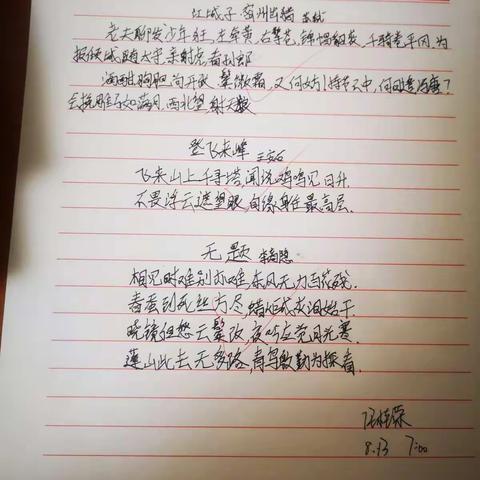 江城子·密州出猎 苏轼
老夫聊发少年狂,左牵黄,右擎苍,锦帽貂裘,千骑卷平冈,为
报倾城随太守,亲射虎,看孙郎
酒酣胸胆尚开张,鬓微霜,又何妨!持节云中,何日遣冯唐?
会挽雕弓如满月,西北望,射天狼
登飞来峰 王安石
飞来山上千寻塔,闻说鸡鸣见日升.
不畏浮云遮望眼,自缘身在最高层.
无题 李商隐
相见时难别亦难,东风无力百花残.
春蚕到死丝方尽,蜡炬成灰泪始干.
晓镜但愁云鬓改,夜吟应觉月光寒.
蓬山此去无多路,青鸟殷勤为探看.
8.13 7:00